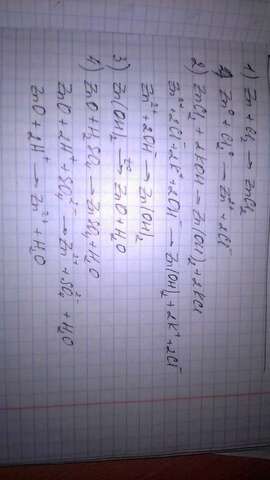 1) Zn + Cl₂ → ZnCl₂
Zn⁰ + Cl₂⁰ → Zn²⁺ + 2Cl⁻
2) ZnCl₂ + 2KOH → Zn(OH)₂ + 2KCl
Zn²⁺ + 2Cl⁻ + 2K⁺ + 2OH⁻ → Zn(OH)₂ + 2K⁺ + 2Cl⁻
Zn²⁺ + 2OH⁻ → Zn(OH)₂
3) Zn(OH)₂ →(t°) ZnO + H₂O
4) ZnO + H₂SO₄ → ZnSO₄ + H₂O
ZnO + 2H⁺ + SO₄²⁻ → Zn²⁺ + SO₄²⁻ + H₂O
ZnO + 2H⁺ → Zn²⁺ + H₂O